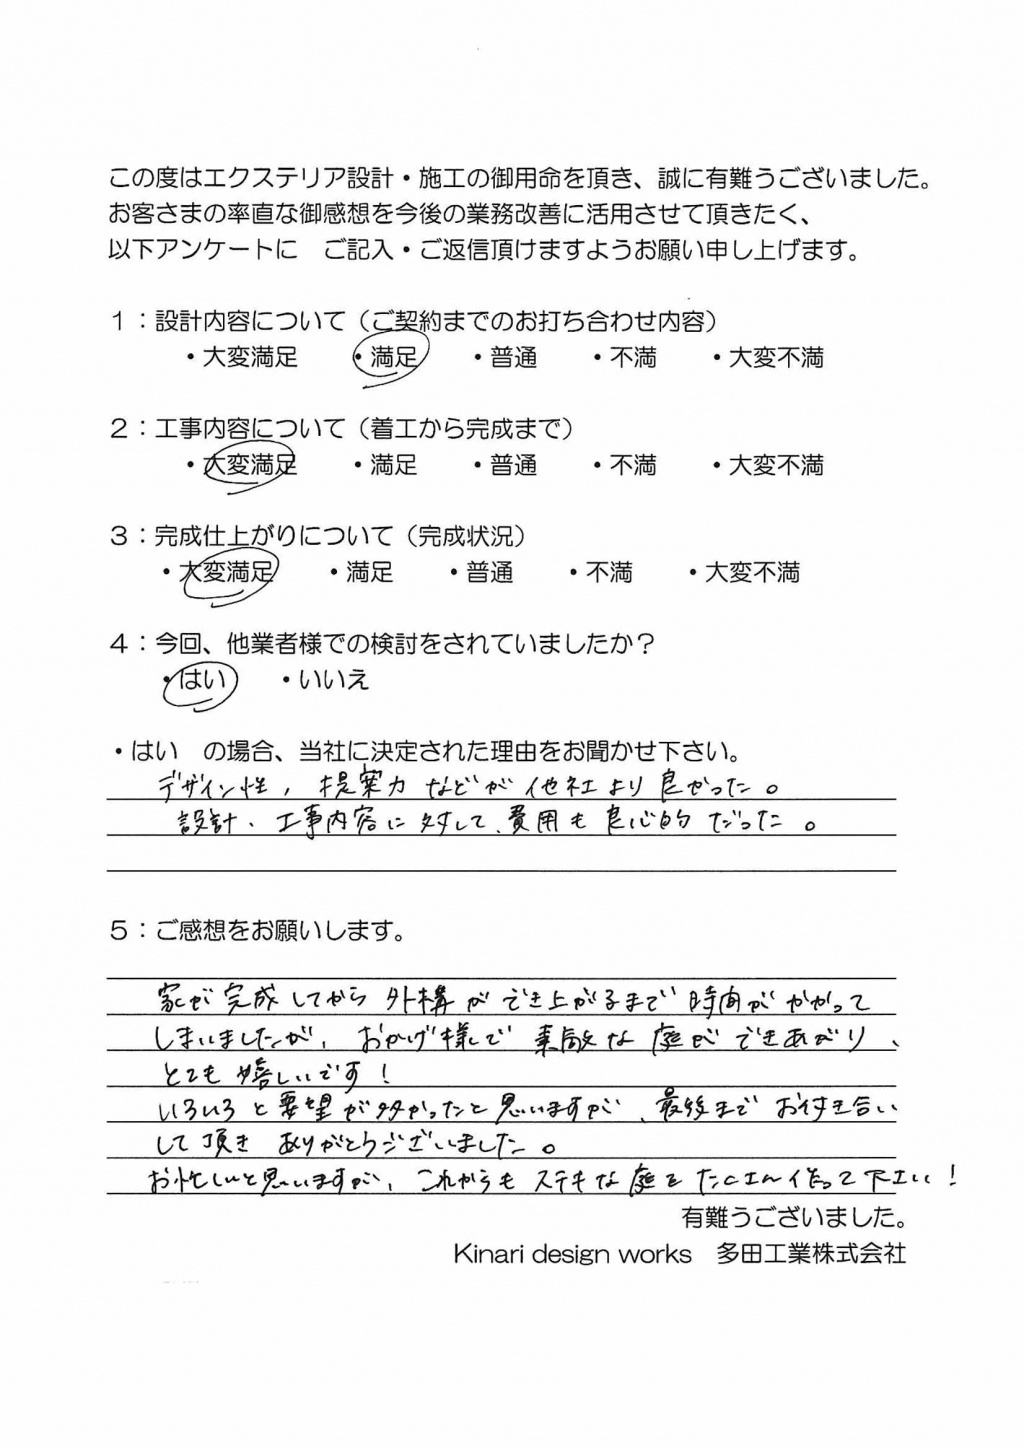 この度はエクステリア設計・施工の御用命を頂き、誠に有難うございました。
お客さまの率直な御感想を今後の業務改善に活用させて頂きたく、
以下アンケートに　ご記入・ご返信頂けますようお願い申し上げます。
１：設計内容について（ご契約までのお打ち合わせ内容）
・大変満足　・満足　・普通　・不満　・大変不満
２：工事内容について（着工から完成まで）
・大変満足　・満足　・普通　・不満　・大変不満
３：完成仕上がりについて（完成状況）
・大変満足　・満足　・普通　・不満　・大変不満
４：今回、他業者様での検討をされていましたか？
・はい　・いいえ
・はい　の場合、当社に決定された理由をお聞かせ下さい。
デザイン性，提案力などが他社より良かった。
設計、工事内容に対して、費用も良心的だった。
５：ご感想をお願いします。
家が完成してから外構ができ上がるまで時間がかかって
しまいましたが、おかげ様で素敵な庭ができあがり、
とても嬉しいです！
いろいろと要望が多かったと思いますが、最後までお付き合い
して頂きありがとうございました。
お忙しいと思いますが、これからもステキな庭をたくさん作って下さい！
有難うございました。
Kinari design works　多田工業株式会社